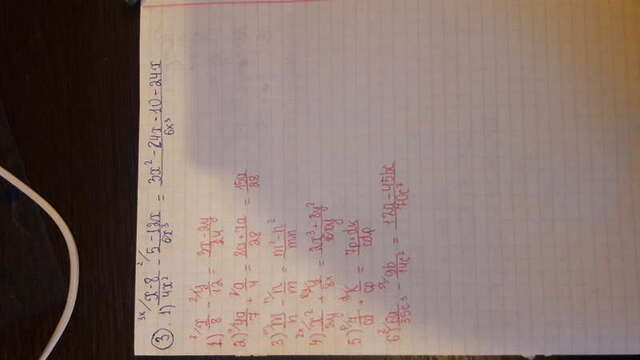 ③. 1) ³ˣ/ (x-8)/(4x²) - ²/ (5-12x)/(6x³) = (3x²-24x-10-24x)/(6x³)
1) ³/ x/8 - ²/ y/12 = (3x-2y)/24
2) 4a/7 + a/4 = (8a+7a)/28 = 15a/28
3) ᵐ/ m/n - ⁿ/ n/m = (m²-n²)/(mn)
4) ²ˣ/ x²/8y + y/8x = (2x³+8y²)/(16xy)
5) ᵖ/ 7/cd + ᵈ/ k/cp = (7p+dk)/(cdp)
6) ²/ 6a/35c³ - 9b/14c² = (12a-45bc)/(70c³)